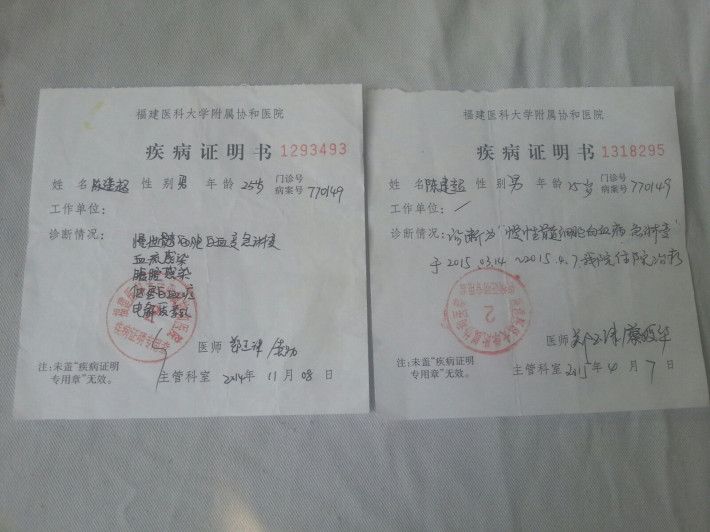 福建医科大学附属协和医院
疾病证明书 1293493
姓 名 陈建超 性 别 男 年 龄 25岁 门诊号 病案号 770149
工作单位:
诊断情况:
血流感染
腹腔感染
低蛋白血症
医师
注:未盖“疾病证明
专用章”无效。
主管科室 2014年 11月 08日
福建医科大学附属协和医院
疾病证明书 1318295
姓 名 陈建超 性 别 男 年 龄 25岁 门诊号 病案号 770149
工作单位: /
诊断情况: 诊断为“慢性髓细胞白血病 急淋变”
于2015.03.14~2015.4.7.我院住院治疗
2
医师
注:未盖“疾病证明
专用章”无效。
主管科室 2015年 4月 7日